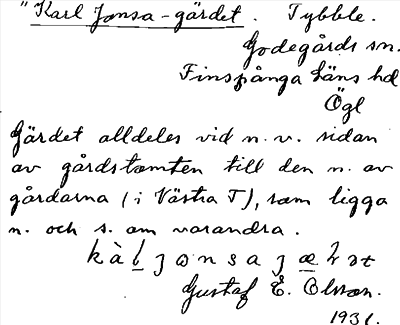 "Karl Jonsa-gärdet. Tybble.
Godegårds sn.
Finspånga läns hd
Ögl
Gärdet alldeles vid n.v. sidan
av gårdstomten till den n. av
gårdarna (i Västra T), som ligga
n. och s. om varandra.
Gustaf E. Olsson.
1931.